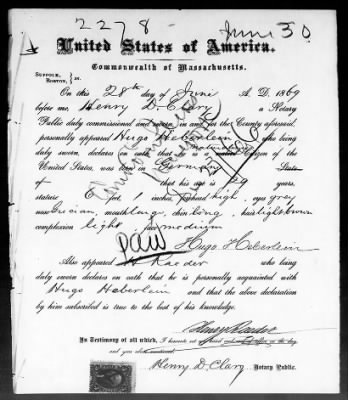 2278 June 30
United States of America.
Commonwealth of Massachusetts.
SUFFOLK,
BOSTON, } ss.
On this 28th day of June A. D. 1869
before me, Henry D. Clary a Notary
Public duly commissioned and sworn in and for the County aforesaid,
personally appeared Hugo Heberlein who being
duly sworn, declares on oath that he is a Citizen of the
United States, was born in Germany State
of that his age is 29 years,
stature 6 feet 1 inches, forehead high, eyes grey
nose Grecian, mouth large, chin long, hair light brown
complexion light face medium
paid Hugo Heberlein
Also appeared H Raeder who being
duly sworn declares on oath that he is personally acquainted with
Hugo Heberlein and that the above declaration
by him subscribed is true to the best of his knowledge.
Henry Raeder
In Testimony of all which, I hereunto set my hand and seal of office on the day
and year above mentioned.
Henry D. Clary Notary Public.